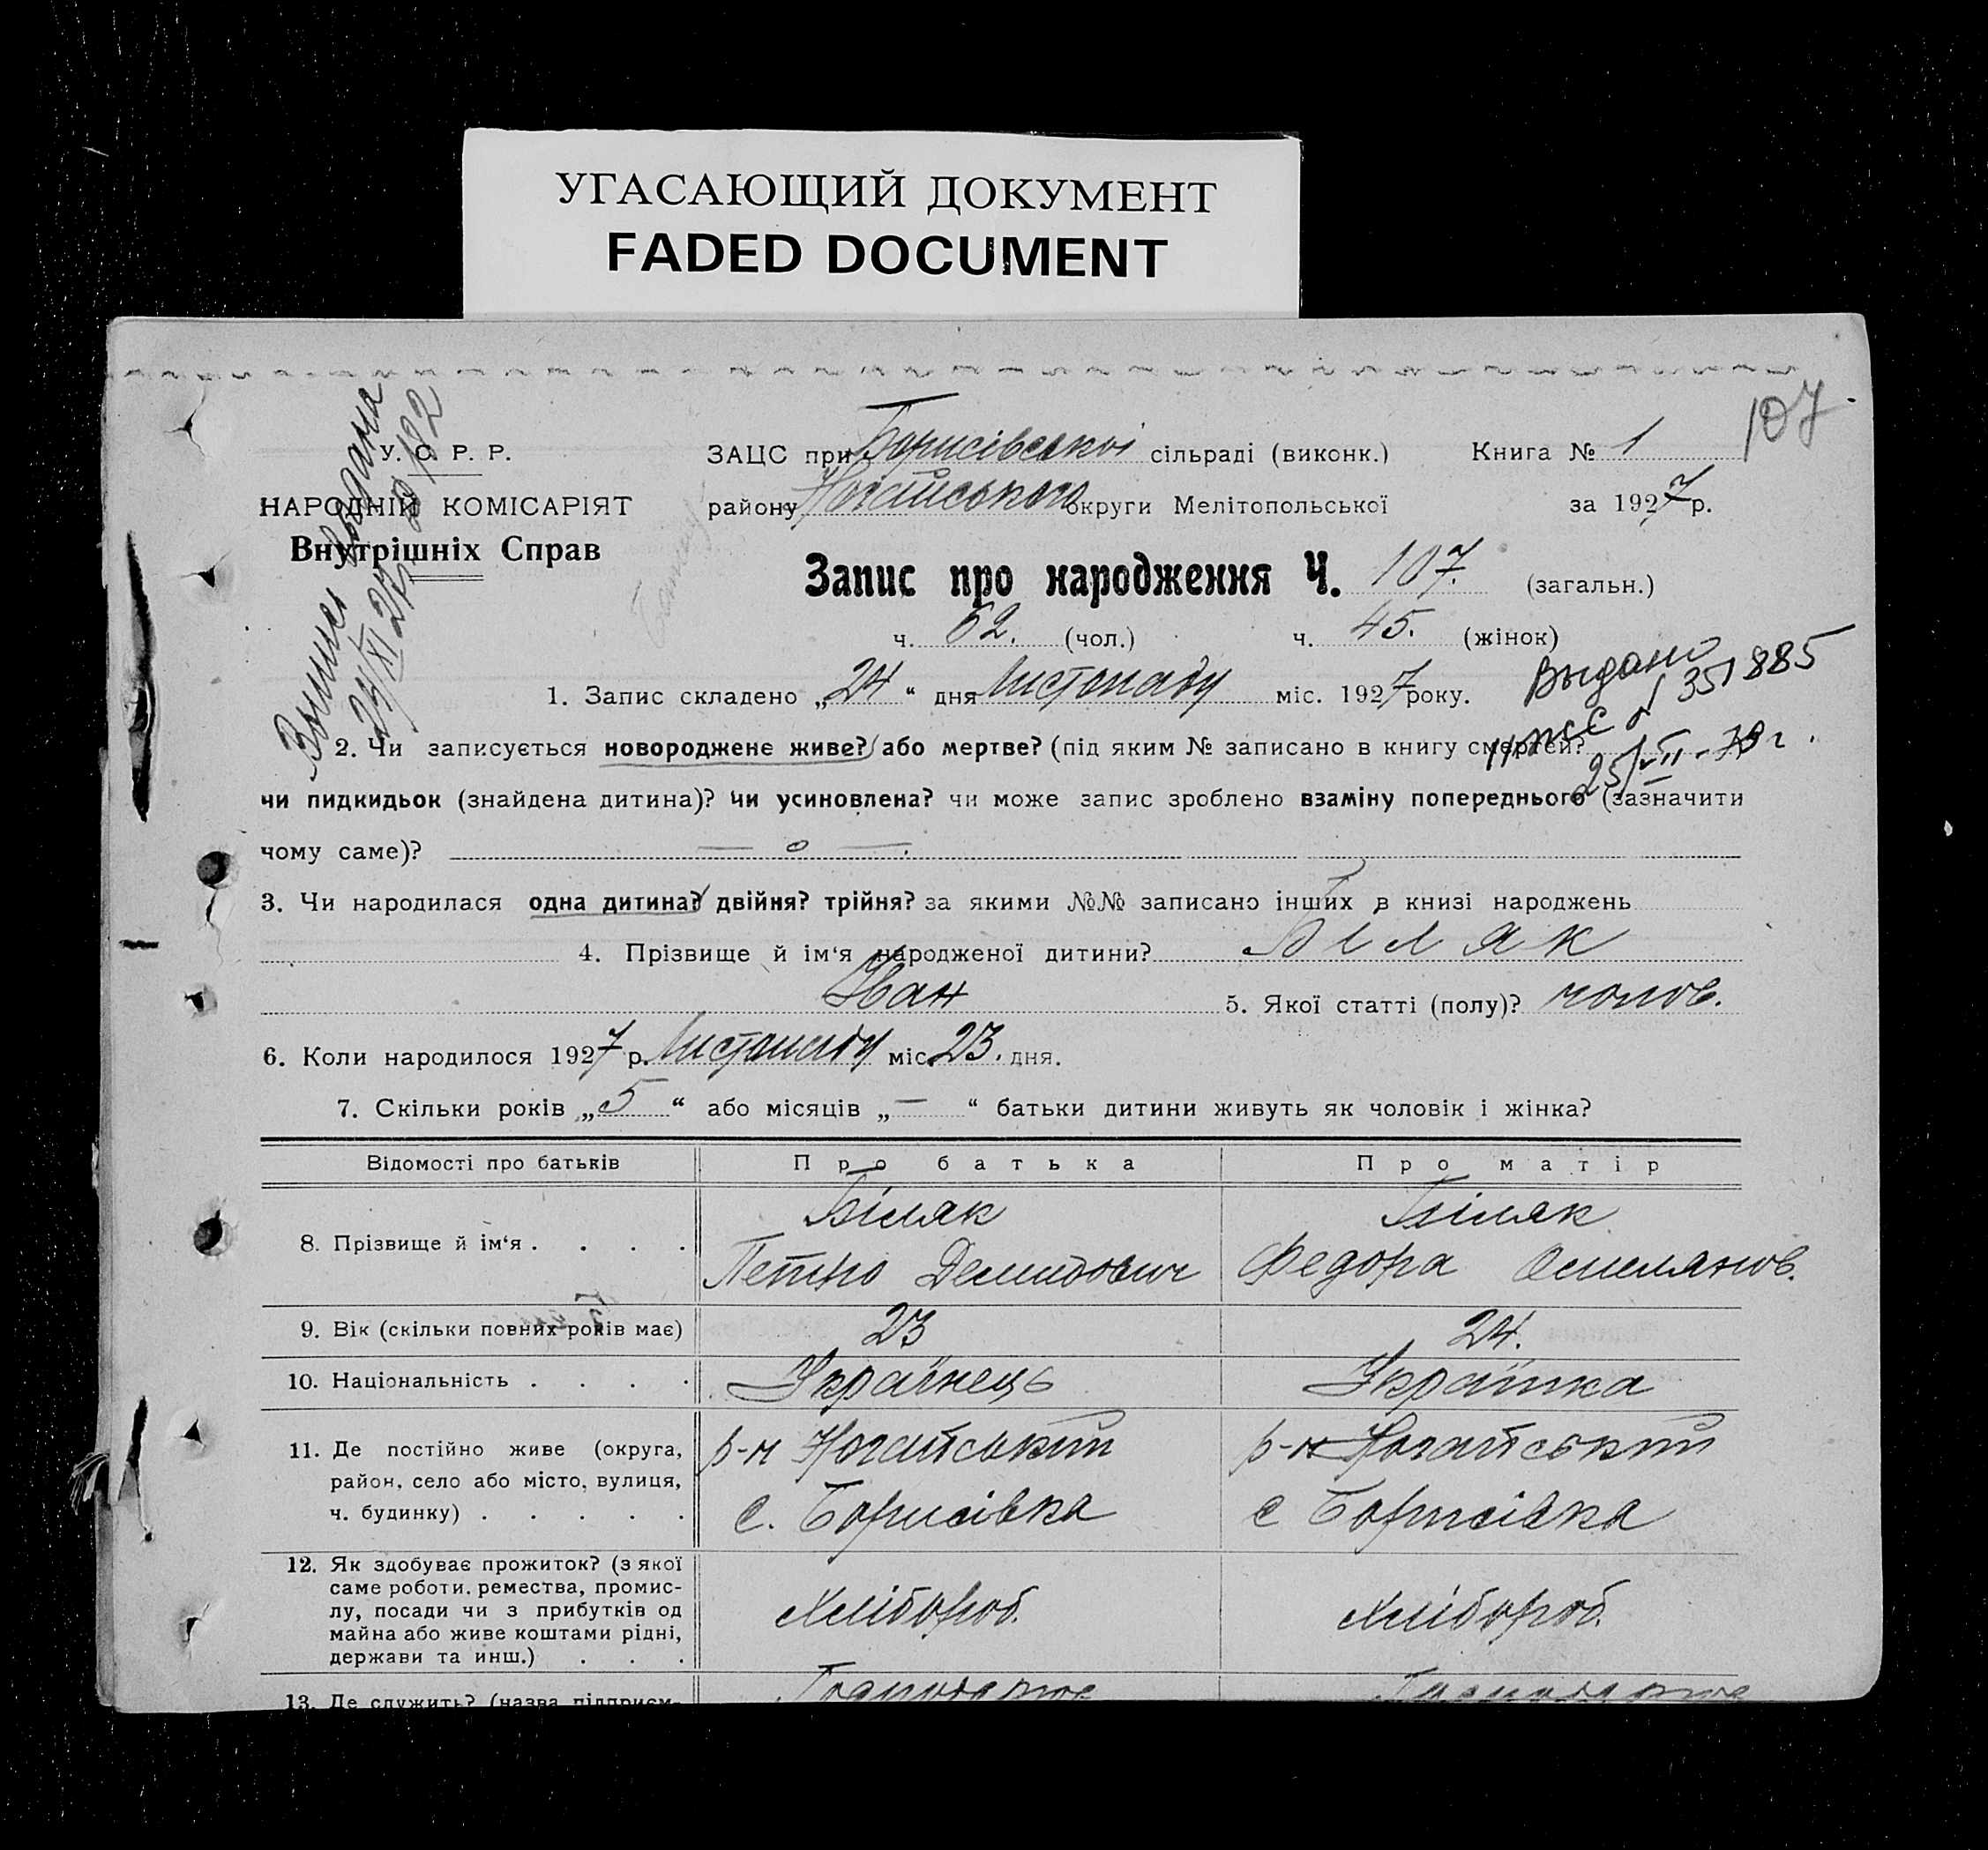 УГАСАЮЩИЙ ДОКУМЕНТ
FADED DOCUMENT
107
У. С. Р. Р.
НАРОДНІЙ КОМІСАРІЯТ
Внутрішніх Справ
ЗАЦС при Борисівської сільраді (виконк.) Книга № 1
району Ногайського округи Мелітопольської за 1927 р.
Запис про народження Ч. 107. (загальн.)
ч. 62. (чол.) ч. 45. (жінок)
Выдано
№ 351885
1. Запис складено „24“ дня Листопаду міс. 1927 року.
2. Чи записується новороджене живе? або мертве? (під яким № записано в книгу смертей?
чи пидкидьок (знайдена дитина)? Чи усиновлена? чи може запис зроблено взаміну попереднього (зазначити
чому саме)? — о —
3. Чи народилася одна дитина? двійня? трійня? за якими №№ записано інших в книзі народжень
4. Прізвище й ім‘я народженої дитини? Біляк
Іван 5. Якої статті (полу)? чолов.
6. Коли народилося 1927 р. Листопаду міс. 23. дня.
7. Скільки років „5“ або місяців „—“ батьки дитини живуть як чоловік і жінка?
Відомості про батьків Про батька Про матір
8. Прізвище й ім‘я . . . . Біляк Петро Демидович Біляк Федора Омелянов.
9. Вік (скільки повних років має) 23 24.
10. Національність . . . . Українець Українка
11. Де постійно живе (округа, р-н Ногайський р-н Ногайський
район, село або місто, вулиця,
ч. будинку) . . . . . с. Борисівка с Борисівка
12. Як здобуває прожиток? (з якої
саме роботи, ремества, промис-
лу, посади чи з прибутків од Хлібороб. Хлібороб.
майна або живе коштами рідні,
держави та инш.) . . .
13. Де служить? (назва підприєм-